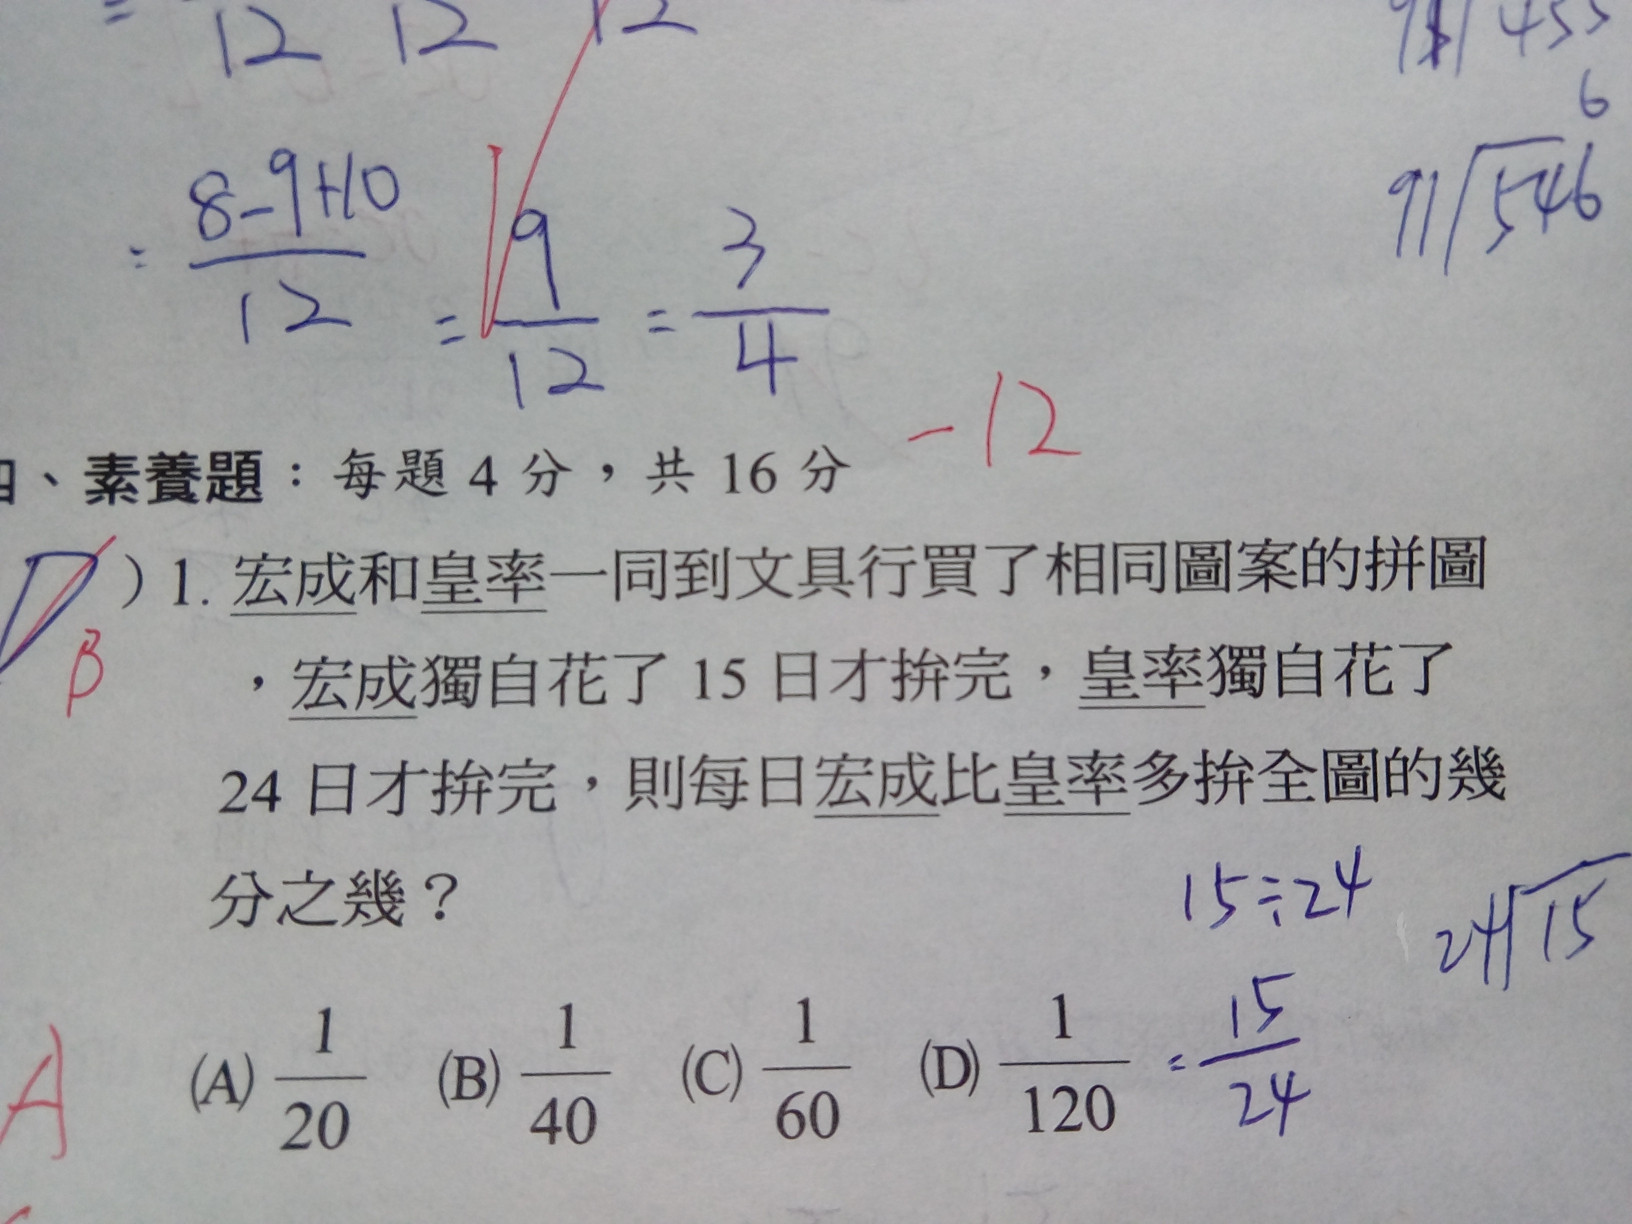 = 12 12 12
91/455
6
91/546
= 8-9+10/12 = 9/12 = 3/4
-12
四、素養題：每題 4 分，共 16 分
)1. 宏成和皇率一同到文具行買了相同圖案的拼圖
B
，宏成獨自花了 15 日才拚完，皇率獨自花了
24 日才拚完，則每日宏成比皇率多拚全圖的幾
分之幾？
15÷24
24/15
A
(A) 1/20 (B) 1/40 (C) 1/60 (D) 1/120 = 15/24